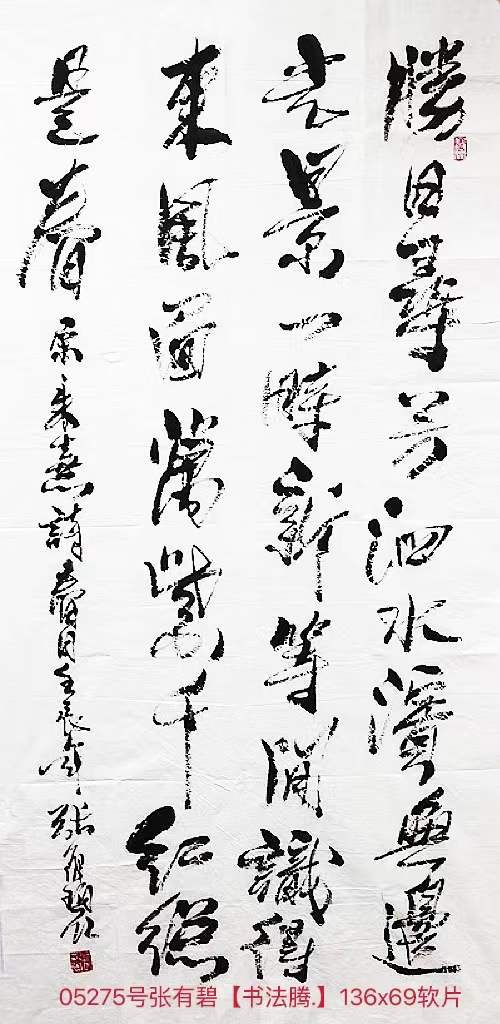 勝日尋芳泗水濱無邊
光景一時新等閒識得
東風面萬紫千紅總
是春 宋朱熹詩春日壬辰年張有碧
05275号张有碧【书法腾.】136x69软片